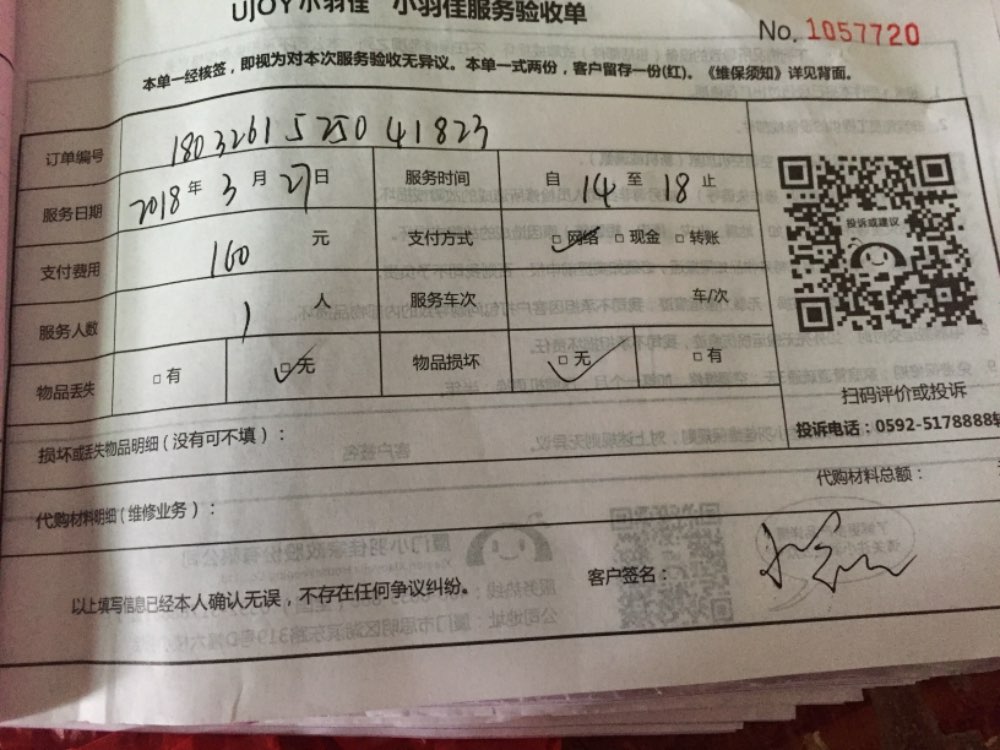 UJOY小羽佳 小羽佳服务验收单
No. 1057720
本单一经核签，即视为对本次服务验收无异议。本单一式两份，客户留存一份(红)。《维保须知》详见背面。
订单编号 1803261525041823
服务日期 2018年3月27日 服务时间 自14至18止
支付费用 160元 支付方式 □网络 □现金 □转账
服务人数 1人 服务车次 车/次
物品丢失 □有 □无 物品损坏 □无 □有
投诉或建议
扫码评价或投诉
投诉电话：0592-5178888转
损坏或丢失物品明细(没有可不填)：
代购材料总额：
代购材料明细(维修业务)：
客户签名：
以上填写信息已经本人确认无误，不存在任何争议纠纷。